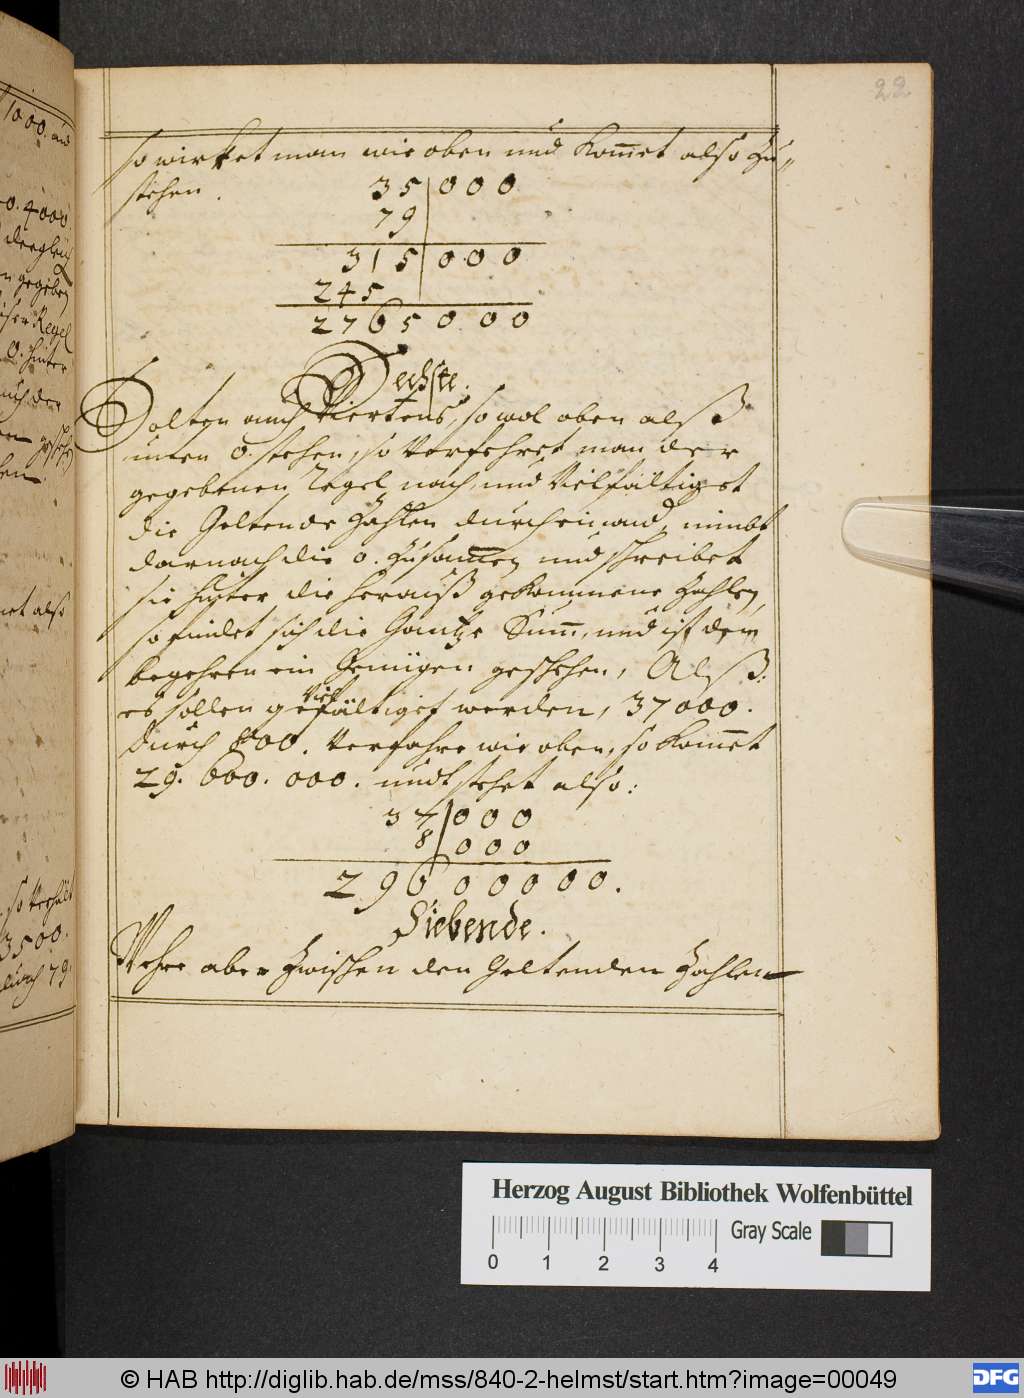 22
so wirket man wie oben und kom̅et also zu
stehen.
35|000
79
315|000
245
2765000
Sechste.
Solten auch Viertens, so wol oben alß
unten 0. stehen, so verfehret man der
gegebenen Regel nach, und Vielfältiget
die Geltende Zahlen durch einand, nimbt
darnach die 0. zusam̅en und schreibet
sie hinter die herauß gekommene Zahlen,
so findet sich die Gantze Sum̅, und ist dem
begehren ein Genügen geschehen, Alß:
es sollen gevielfältiget werden, 37000.
durch 800. Verfahre wie oben, so kom̅et
29. 600. 000. undt stehet also:
37|000
8|000
296 00000.
Siebende.
Wehre aber Zwischen den Geltenden Zahlen
1000. und
0. 4000
dergleich
gegeben
Regel
0. hinter
nach der
also
so
3500.
durch 79
Herzog August Bibliothek Wolfenbüttel
Gray Scale
0 1 2 3 4
© HAB http://diglib.hab.de/mss/840-2-helmst/start.htm?image=00049
DFG